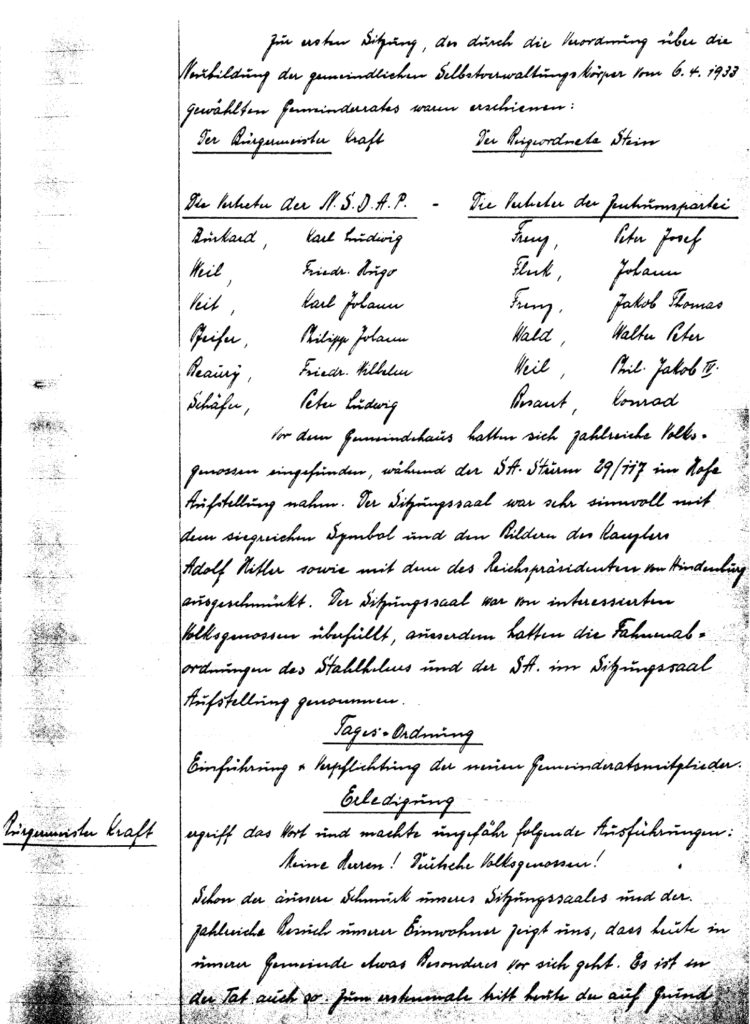 Zur ersten Sitzung, des durch die Verordnung über die
Neubildung der gemeindlichen Selbstverwaltungskörper vom 6.4.1933
gewählten Gemeinderates waren erschienen:
Der Bürgermeister Kraft Der Beigeordnete Stein
Die Vertreter der N.S.D.A.P. - Die Vertreter der Zentrumspartei
Burkard, Karl Ludwig Frenz, Peter Josef
Weil, Friedr. Hugo Fleck, Johann
Veit, Karl Johann Frenz, Jakob Thomas
Pfeifer, Philipp Johann Wald, Walter Peter
Beaury, Friedr. Wilhelm Weil, Phil. Jakob IV.
Schäfer, Peter Ludwig Besant, Konrad
Vor dem Gemeindehaus hatten sich zahlreiche Volks-
genossen eingefunden, während der SA. Sturm 29/117 im Hofe
Aufstellung nahm. Der Sitzungssaal war sehr sinnvoll mit
dem siegreichen Symbol und den Bildern des Kanzlers
Adolf Hitler sowie mit dem des Reichspräsidenten von Hindenburg
ausgeschmückt. Der Sitzungssaal war von interessierten
Volksgenossen überfüllt, ausserdem hatten die Fahnenab-
ordnungen des Stahlhelms und der SA. im Sitzungssaal
Aufstellung genommen.
Tages-Ordnung
Einführung + Verpflichtung der neuen Gemeinderatsmitglieder.
Erledigung
Bürgermeister Kraft ergriff das Wort und machte ungefähr folgende Ausführungen:
Meine Herren! Deutsche Volksgenossen!
Schon der äussere Schmuck unseres Sitzungssaales und der
zahlreiche Besuch unserer Einwohner zeigt uns, dass heute in
unserer Gemeinde etwas Besonderes vor sich geht. Es ist in
der Tat auch so. Zum erstenmale tritt heute der auf Grund